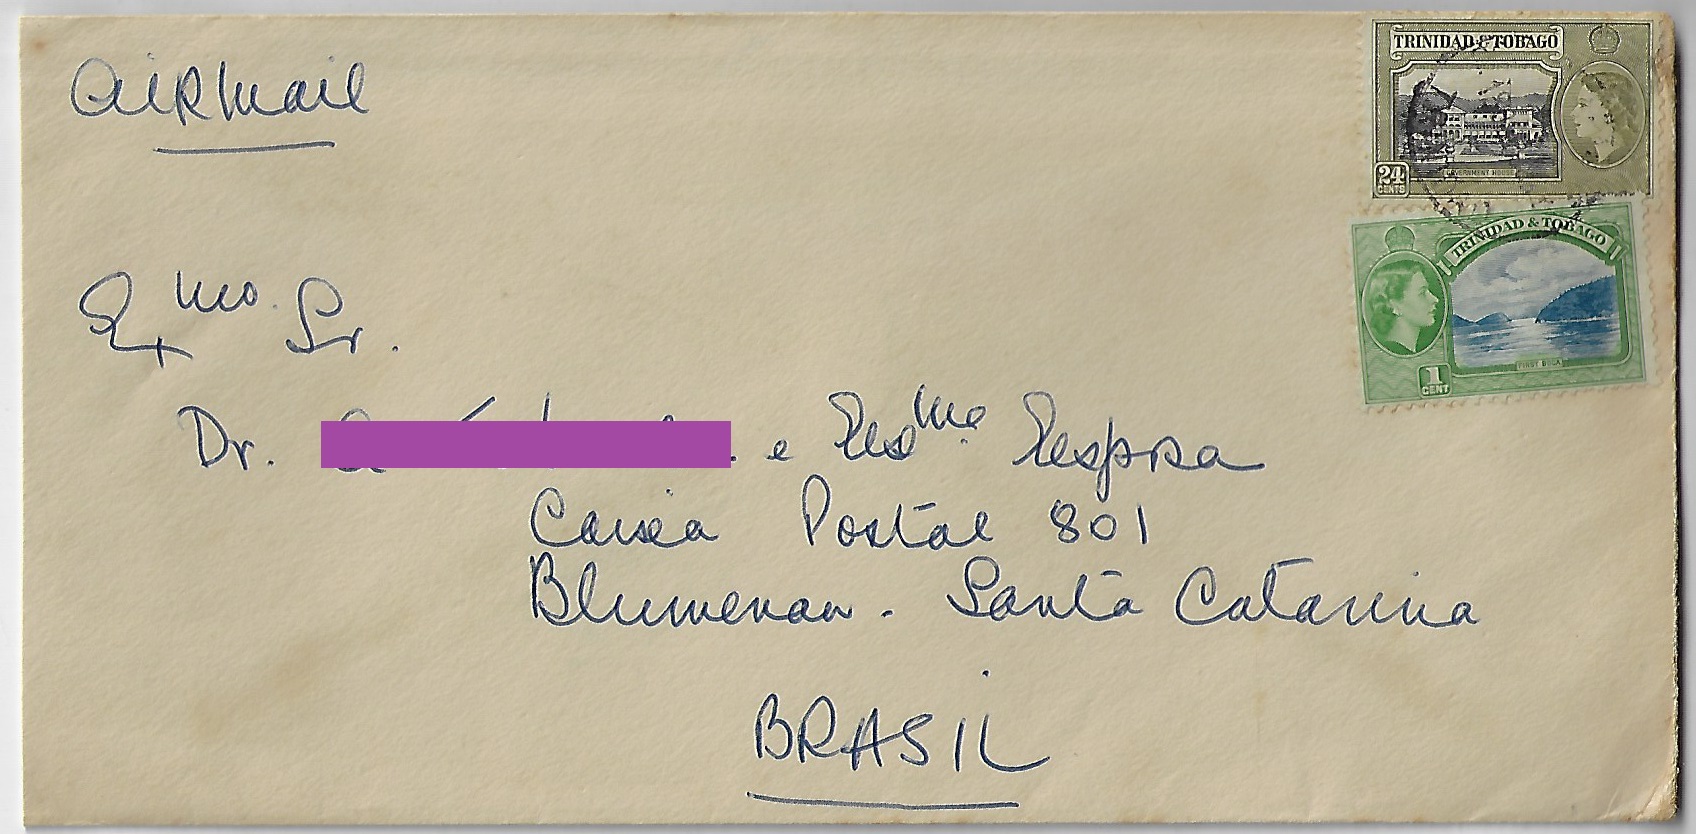 Airmail
TRINIDAD & TOBAGO
24
CENTS
GOVERNMENT HOUSE
TRINIDAD & TOBAGO
FIRST BOCA
1
CENT
Exmo. Sr.
Dr. e Exma. Esposa
Caixa Postal 801
Blumenau - Santa Catarina
BRASIL